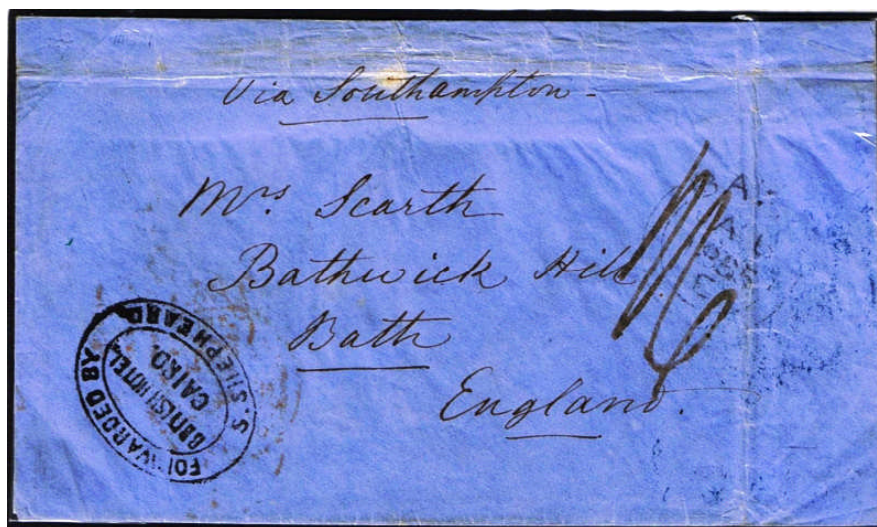 Via Southampton -
Mrs Scarth
Bathwick Hill
Bath
England.
FORWARDED BY
S. SHEPHEARD
BRITISH HOTEL
CAIRO.